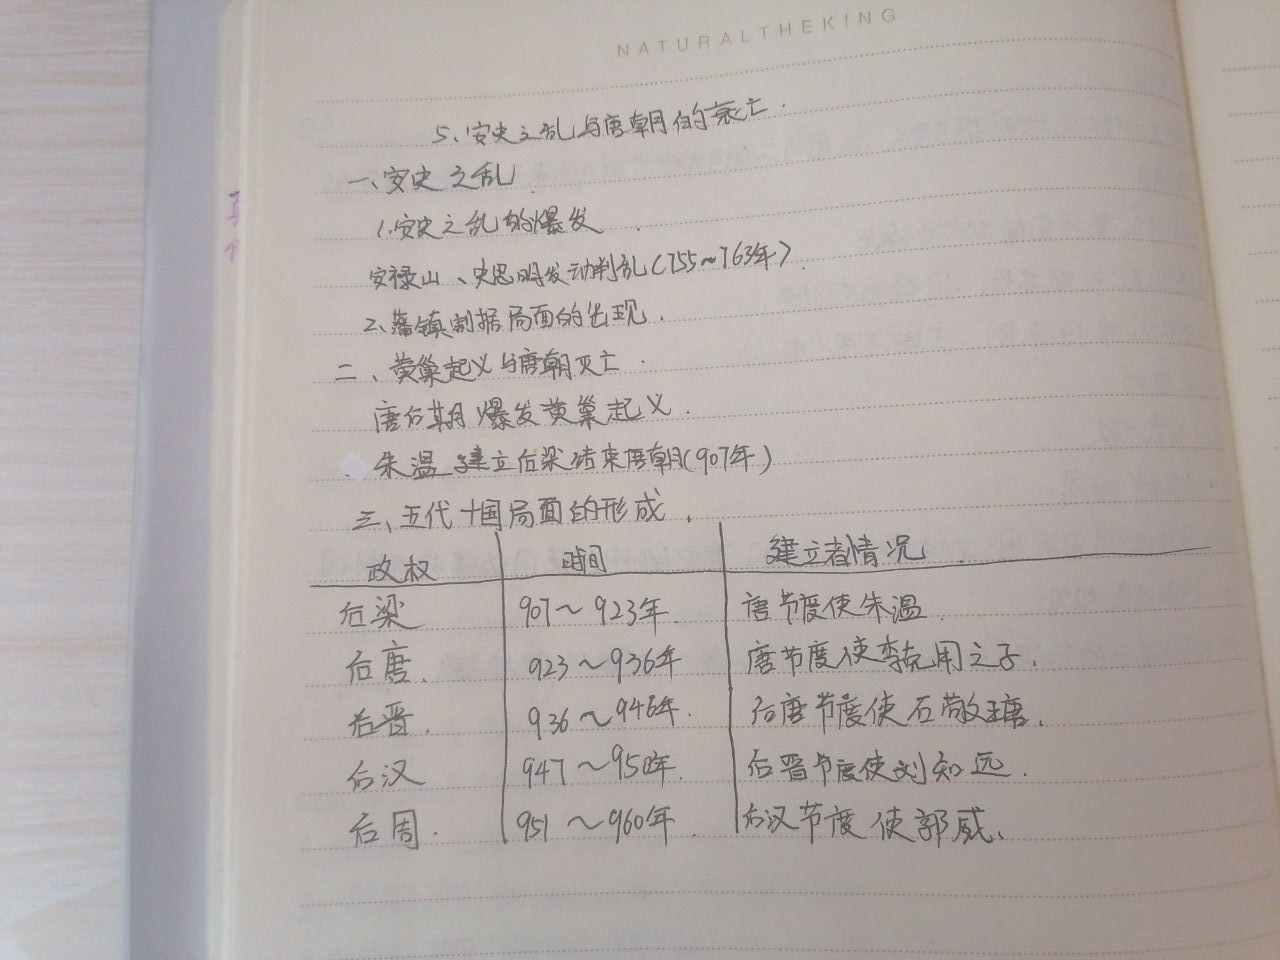 NATURALTHEKING
5、安史之乱与唐朝的衰亡.
一、安史之乱
1.安史之乱的爆发
安禄山、史思明发动判乱(755~763年)
2、藩镇割据局面的出现.
二、黄巢起义与唐朝灭亡.
唐后期爆发黄巢起义.
朱温建立后梁结束唐朝(907年)
三、五代十国局面的形成.
政权 时间 建立者情况.
后梁 907~923年. 唐节度使朱温.
后唐. 923~936年 唐节度使李克用之子.
后晋. 936~946年. 后唐节度使石敬瑭.
后汉 947~950年. 后晋节度使刘知远.
后周. 951~960年. 后汉节度使郭威.